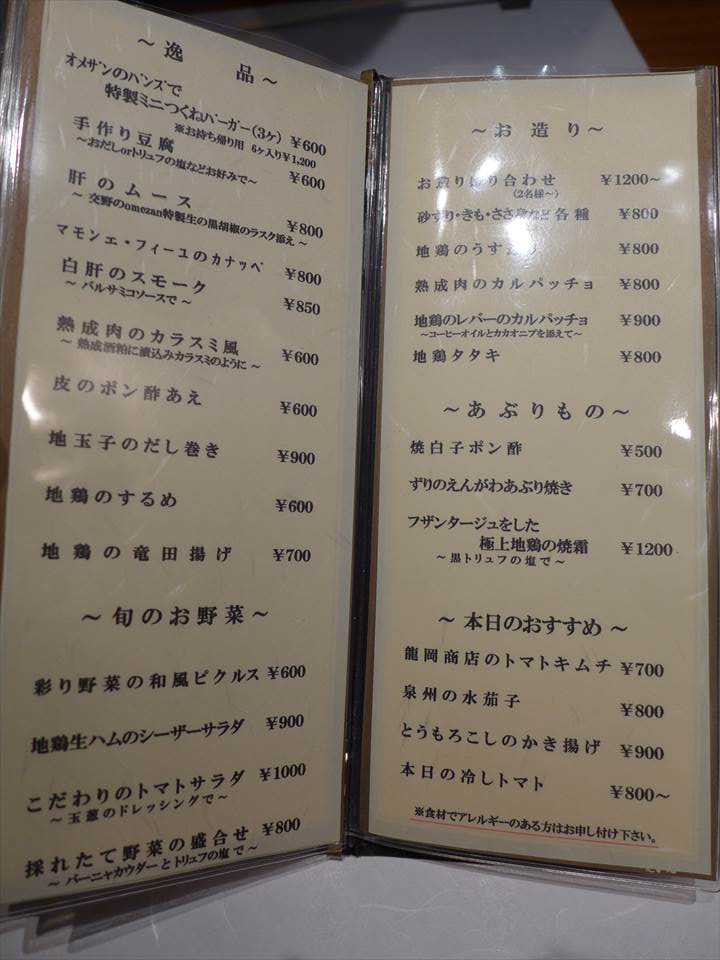 ～逸 品～
オメザンのハンズで
特製ミニつくねバーガー(3ヶ) ¥600
※お持ち帰り用 6ヶ入り¥1,200
手作り豆腐 ¥600
～おだしorトリュフの塩などお好みで～
肝のムース ¥800
～交野のomezan特製生の黒胡椒のラスク添え～
マモンエ・フィーユのカナッペ ¥800
白肝のスモーク ¥850
～バルサミコソースで～
熟成肉のカラスミ風 ¥600
～熟成酒粕に漬込みカラスミのように～
皮のポン酢あえ ¥600
地玉子のだし巻き ¥900
地鶏のするめ ¥600
地鶏の竜田揚げ ¥700
～旬のお野菜～
彩り野菜の和風ピクルス ¥600
地鶏生ハムのシーザーサラダ ¥900
こだわりのトマトサラダ ¥1000
～玉葱のドレッシングで～
採れたて野菜の盛合せ ¥800
～バーニャカウダーとトリュフの塩で～
～お造り～
お造り盛り合わせ ¥1200～
(2名様～)
砂ずり・きも・ささ身など各種 ¥800
地鶏のうす ¥800
熟成肉のカルパッチョ ¥800
地鶏のレバーのカルパッチョ ¥900
～コーヒーオイルとカカオニブを添えて～
地鶏タタキ ¥800
～あぶりもの～
焼白子ポン酢 ¥500
ずりのえんがわあぶり焼き ¥700
フザンタージュをした
極上地鶏の焼霜 ¥1200
～黒トリュフの塩で～
～本日のおすすめ～
龍岡商店のトマトキムチ ¥700
泉州の水茄子 ¥800
とうもろこしのかき揚げ ¥900
本日の冷しトマト ¥800～
※食材でアレルギーのある方はお申し付け下さい。